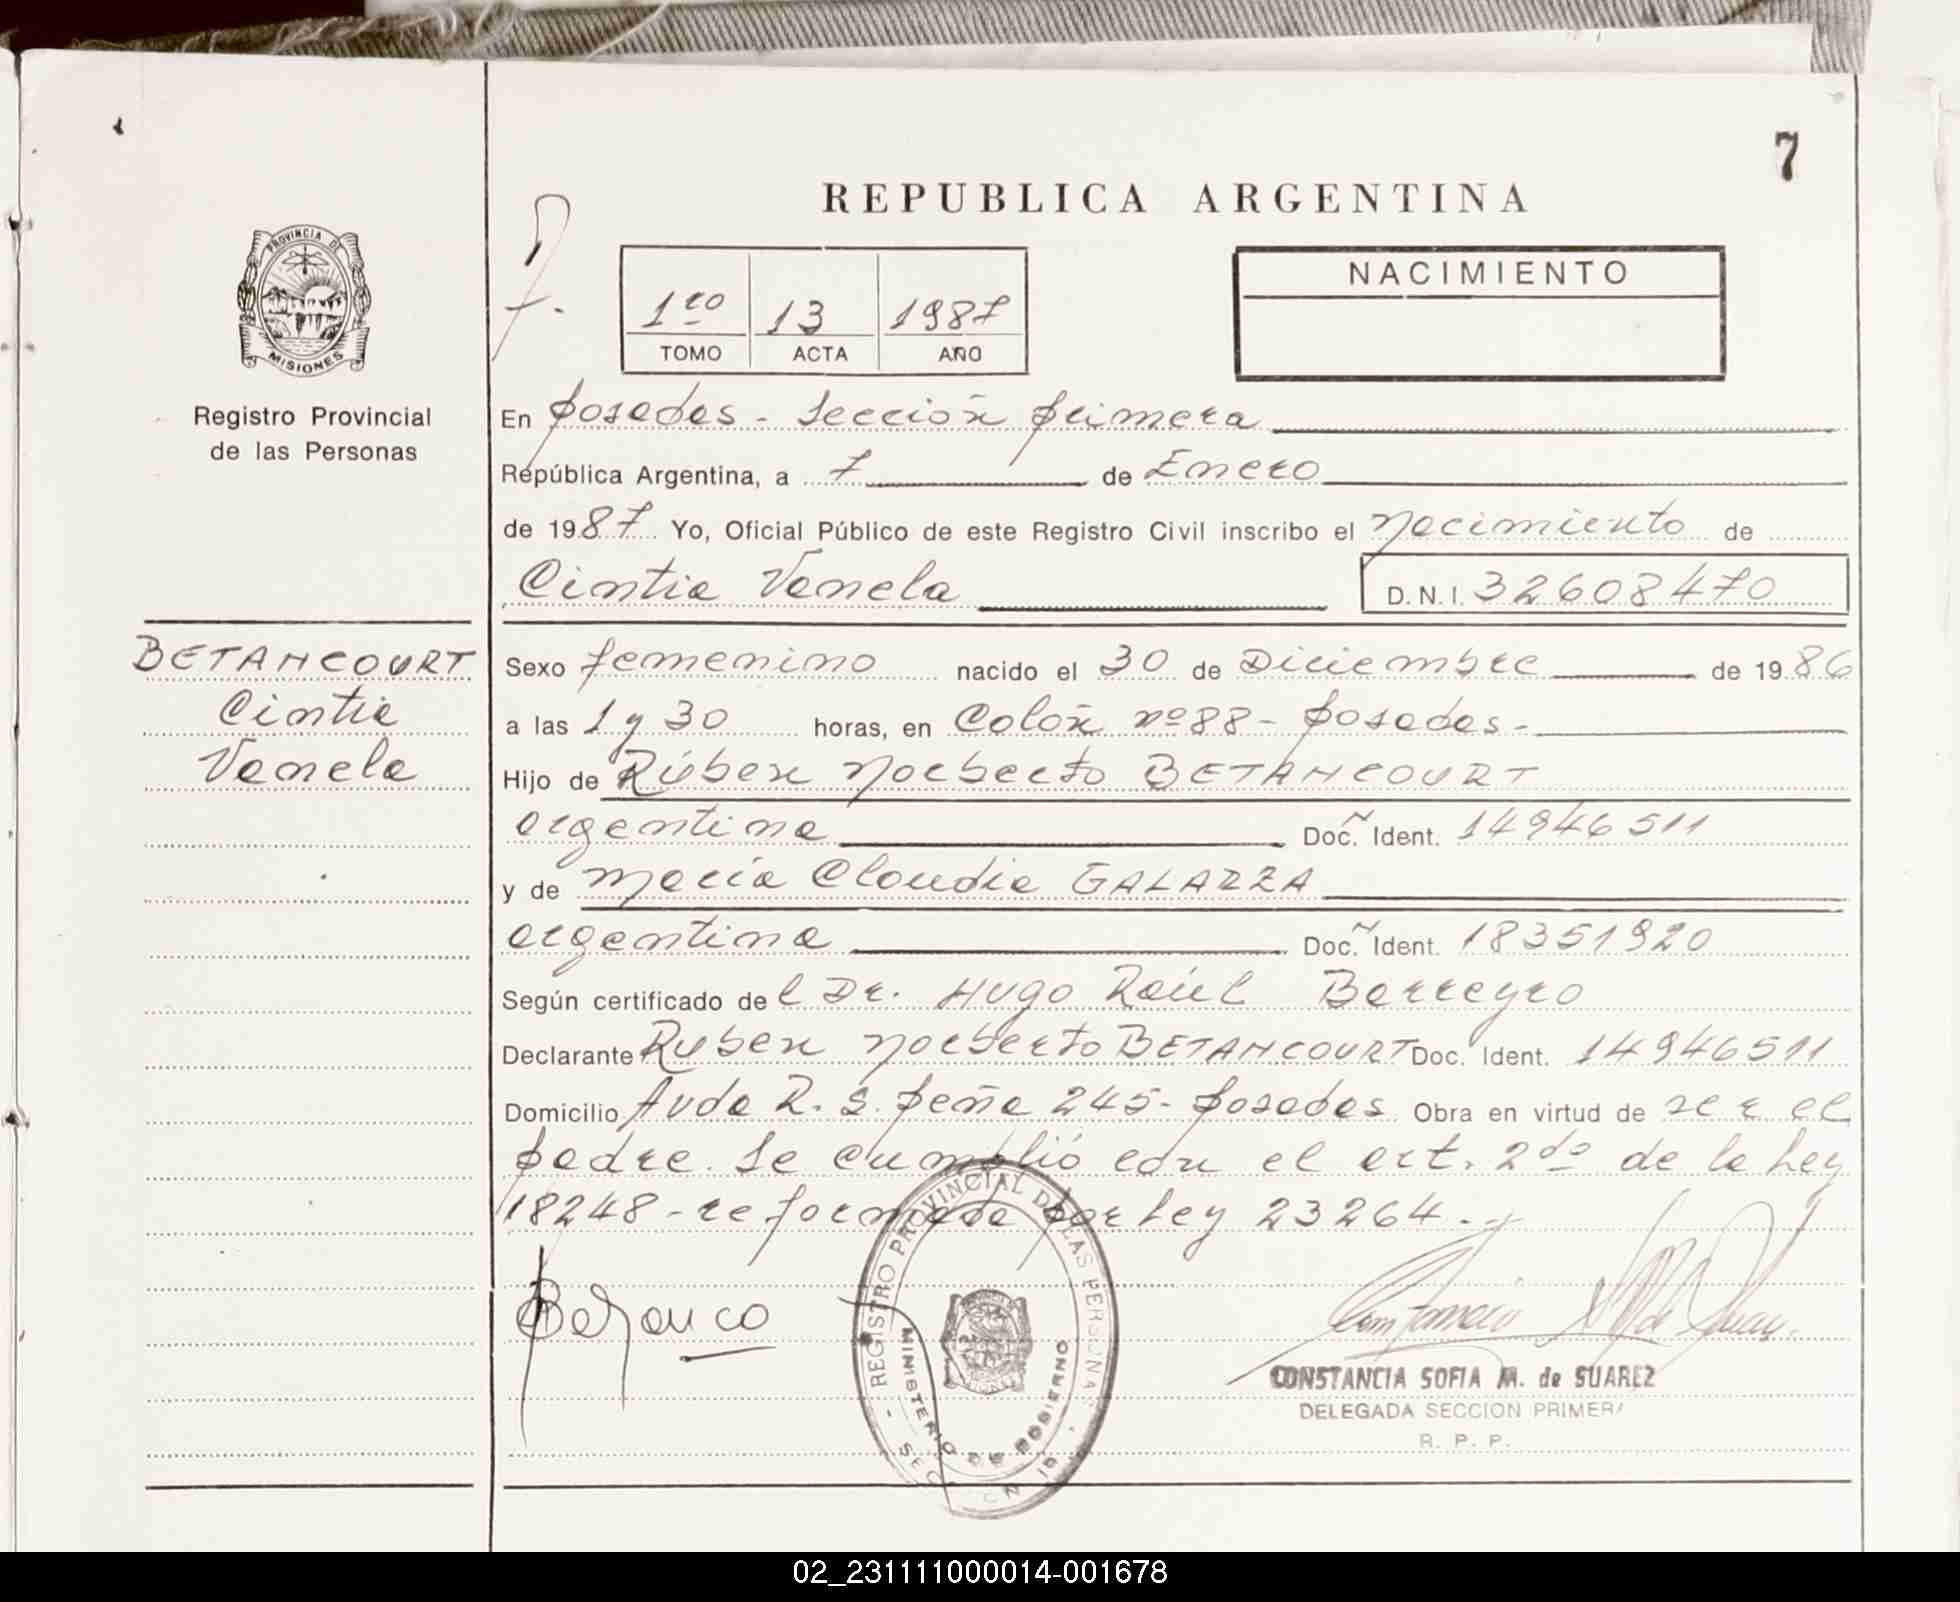 7
REPUBLICA ARGENTINA
PROVINCIA DE
MISIONES
Registro Provincial
de las Personas
7.
1ro 13 1987
TOMO ACTA AÑO
NACIMIENTO
En Posadas - Sección Primera
República Argentina, a 7 de Enero
de 1987 Yo, Oficial Público de este Registro Civil inscribo el Nacimiento de
Cintia Vanela D.N.I. 32608470
BETANCOURT
Cintia
Vanela
Sexo femenino nacido el 30 de Diciembre de 1986
a las 1 y 30 horas, en Colón nº 88 - Posadas -
Hijo de Rúben Norberto BETANCOURT
argentina Doc. Ident. 14946511
y de María Claudia GALARZA
argentina Doc. Ident. 18351920
Según certificado del Dr. Hugo Raúl Barreyro
Declarante Ruben Norberto BETANCOURT Doc. Ident. 14946511
Domicilio Avda R. S. Peña 245 - Posadas Obra en virtud de ser el
padre. Se cumplió con el art. 2do de la Ley
18248 - reformada por Ley 23264.-
REGISTRO PROVINCIAL DE LAS PERSONAS
MINISTERIO DE GOBIERNO
CONSTANCIA SOFIA M. de SUAREZ
DELEGADA SECCION PRIMERA
R. P. P.
02_231111000014-001678